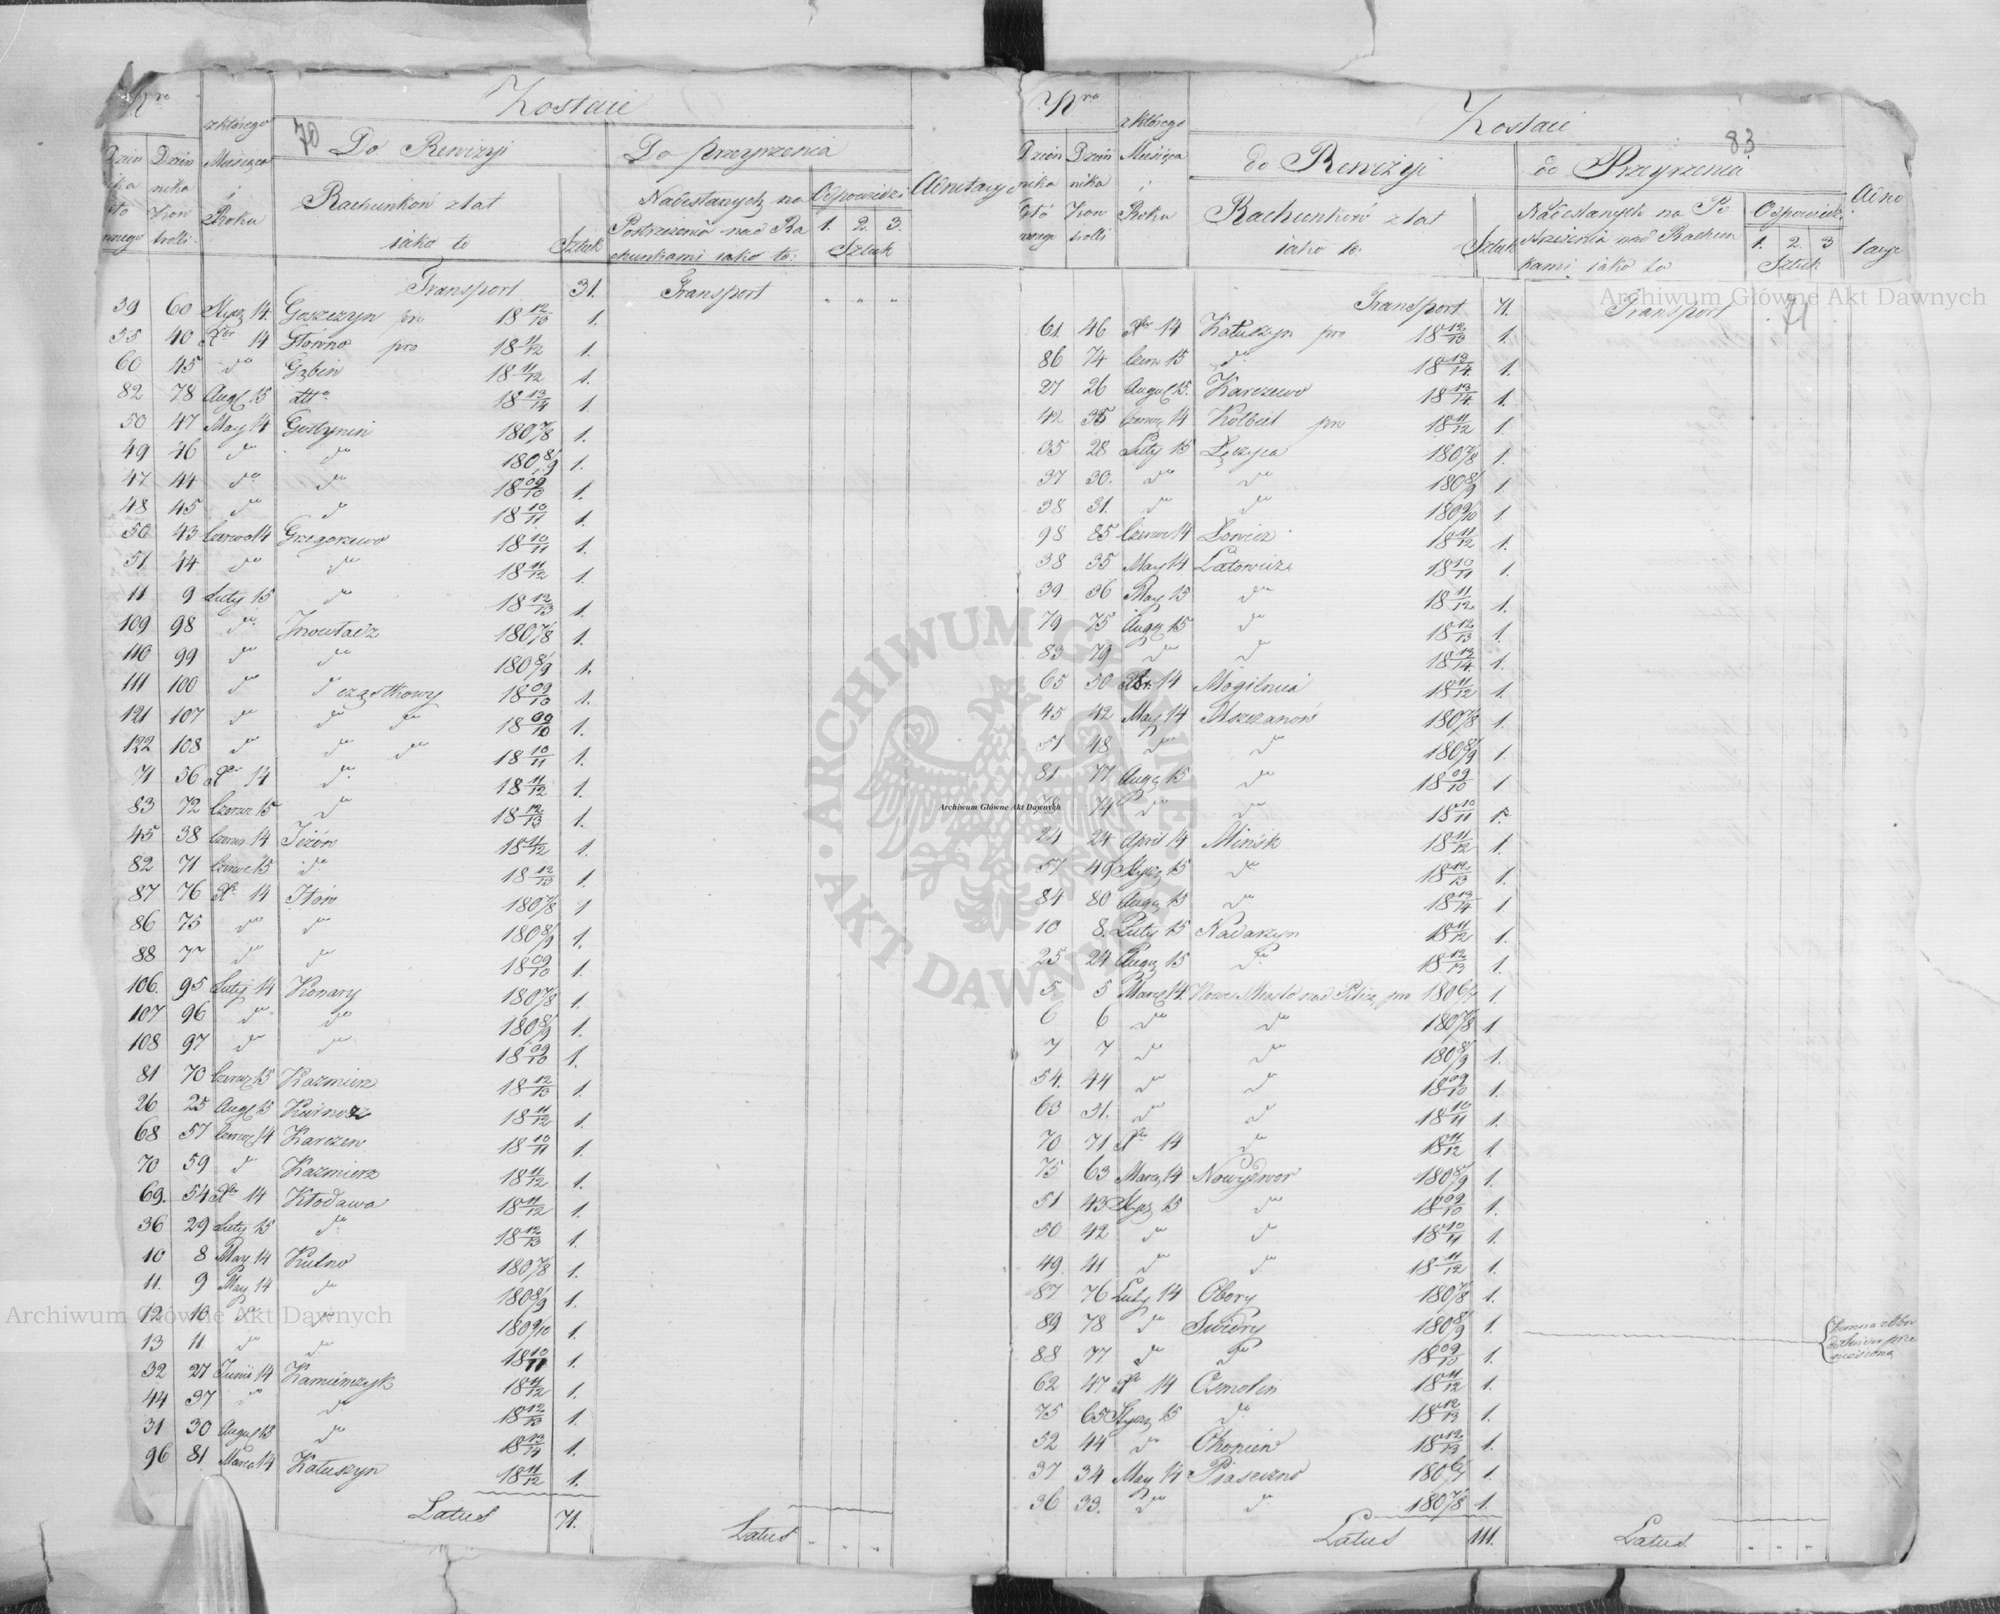 Nro
Zostaie
z którego
70
Do Rewizyi
Do przeyrzenia
Dzien Dzien Miesiąca
nika nika i
Kon Roku
trolli
Rachunków z lat
iako to
Sztuk
Nadesłanych na Odpowiedzi
Postrzeżenia nad Ra 1. 2. 3.
chunkami iako to: Sztuk
Adnotacye
Transport 31. Transport
39 60 Stycz 14 Goszczyn pro 18 12/13 1.
55 40 Xbr 14 Głowno pro 18 11/12 1.
60 45 do Gąbin 18 11/12 1.
82 78 Aug 15 dtto 18 13/14 1.
50 47 May 14 Gostynin 180 7/8 1.
49 46 do do 180 8/9 1.
47 44 do do 18 09/10 1.
48 45 do do 18 10/11 1.
50 43 Czerwca 14 Grzegorzewo 18 10/11 1.
51 44 do do 18 11/12 1.
11 9 Luty 15 do 18 12/13 1.
109 98 do Inowłodz 180 7/8 1.
110 99 do do 180 8/9 1.
111 100 do do cząstkowy 18 09/10 1.
121 107 do do do 18 09/10 1.
122 108 do do do 18 10/11 1.
71 56 Xbr 14 do 18 11/12 1.
83 72 Czerw 15 do 18 12/13 1.
45 38 Czerw 14 Jeżów 18 11/12 1.
82 71 Czerwc 15 do 18 12/13 1.
87 76 Xbr 14 Iłów 180 7/8 1
86 75 do do 180 8/9 1.
88 77 do do 18 09/10 1.
106. 95 Luty 14 Konary 180 7/8 1.
107 96 do do 180 8/9 1.
108 97 do do 18 09/10 1.
81 70 Czerwc 15 Kazmierz 18 12/13 1.
26 25 Aug 15 18 11/12 1.
68 57 Czerwc 14 Karczew 18 10/11 1.
70 59 do Kazmierz 18 11/12 1.
69. 54 Xbr 14 Kłodawa 18 11/12 1.
36 29 Luty 15 do 18 12/13 1.
10 8 May 14 Kutno 180 7/8 1.
11. 9 May 14 do 180 8/9 1.
12 10 do do 180 9/10 1.
13 11 do do 18 10/11 1.
32 27 Junii 14 Kamieńczyk 18 11/12 1.
44 37 do do 18 12/13 1.
31 30 August 15 do 18 13/14 1.
96 81 Marca 14 Kałuszyn 18 11/12 1.
Latus 71. Latus
Nro
Zostaie
z którego
83
do Rewizyi
do Przeyrzenia
Dzien Dzien Miesiąca
nika nika i
Kon Roku
trolli
Rachunków z lat
iako to
Sztuk
Nadesłanych na Po Odpowiedzi
strzeżenia nad Rachun 1. 2. 3
kami iako to Sztuk
Adno
tacye
Transport 71. Transport
71
61. 46 Xbr 14 Kałuszyn pro 18 12/13 1.
86 74 Czerw 15 do 18 13/14 1.
27 26 August 15. Karczewo 18 13/14 1.
42 35 Czerwc 14 Kołbiel pro 18 11/12 1.
35 28 Luty 15 Łęczyca 180 7/8 1.
37 30. do do 180 8/9 1
38 31. do do 180 9/10 1
98 85 Czerwc 14 Łowicz 18 11/12 1.
38 35 May 14 Latowicz 18 10/11 1.
39 36 May 15 do 18 11/12 1.
79 75 Aug 15 do 18 12/13 1.
83 79 do do 18 13/14 1.
65 50 Xbr 14 Mogilnica 18 11/12 1.
45 42 May 14 Mszczonów 180 7/8 1.
51 48 do do 180 8/9 1.
81 77 Aug 15 do 18 09/10 1
78 74 do do 18 10/11 1.
24 24 April 14 Mińsk 18 11/12 1.
57 49 Stycz 15 do 18 12/13 1.
84 80 Aug 15 do 18 13/14 1
10 8. Luty 15 Nadarzyn 18 11/12 1.
25 24 Aug 15 do 18 12/13 1.
5 5 Marc 14. Nowe Miasto nad Pilicą pro 180 6/7 1.
6 6 do do 180 7/8 1
7 7 do do 180 8/9 1.
54. 44 do do 18 09/10 1.
63 51. do do 18 10/11 1.
70 71 Xbr 14 do 18 11/12 1
75 63 Marc 14 Nowydwor 180 8/9 1.
51 43 Stycz 15 do 18 09/10 1.
50 42 do do 18 10/11 1.
49. 41 do do 18 11/12 1.
87 76 Luty 14 Obory 180 7/8 1.
89 78 do Świdry 180 8/9 1.
88 77 do do 18 09/10 1.
62 47 Xbr 14 Osmolin 18 11/12 1.
75 65 Stycz 15 do 18 12/13 1.
52 44 do Okoniew 18 12/13 1.
37 34 May 14 Piaseczno 180 6/7 1.
36 33. do do 180 7/8 1.
Latus 111. Latus
Archiwum Główne Akt Dawnych
Archiwum Główne Akt Dawnych
Archiwum Główne Akt Dawnych
ARCHIWUM GŁÓWNE · AKT DAWNYCH ·